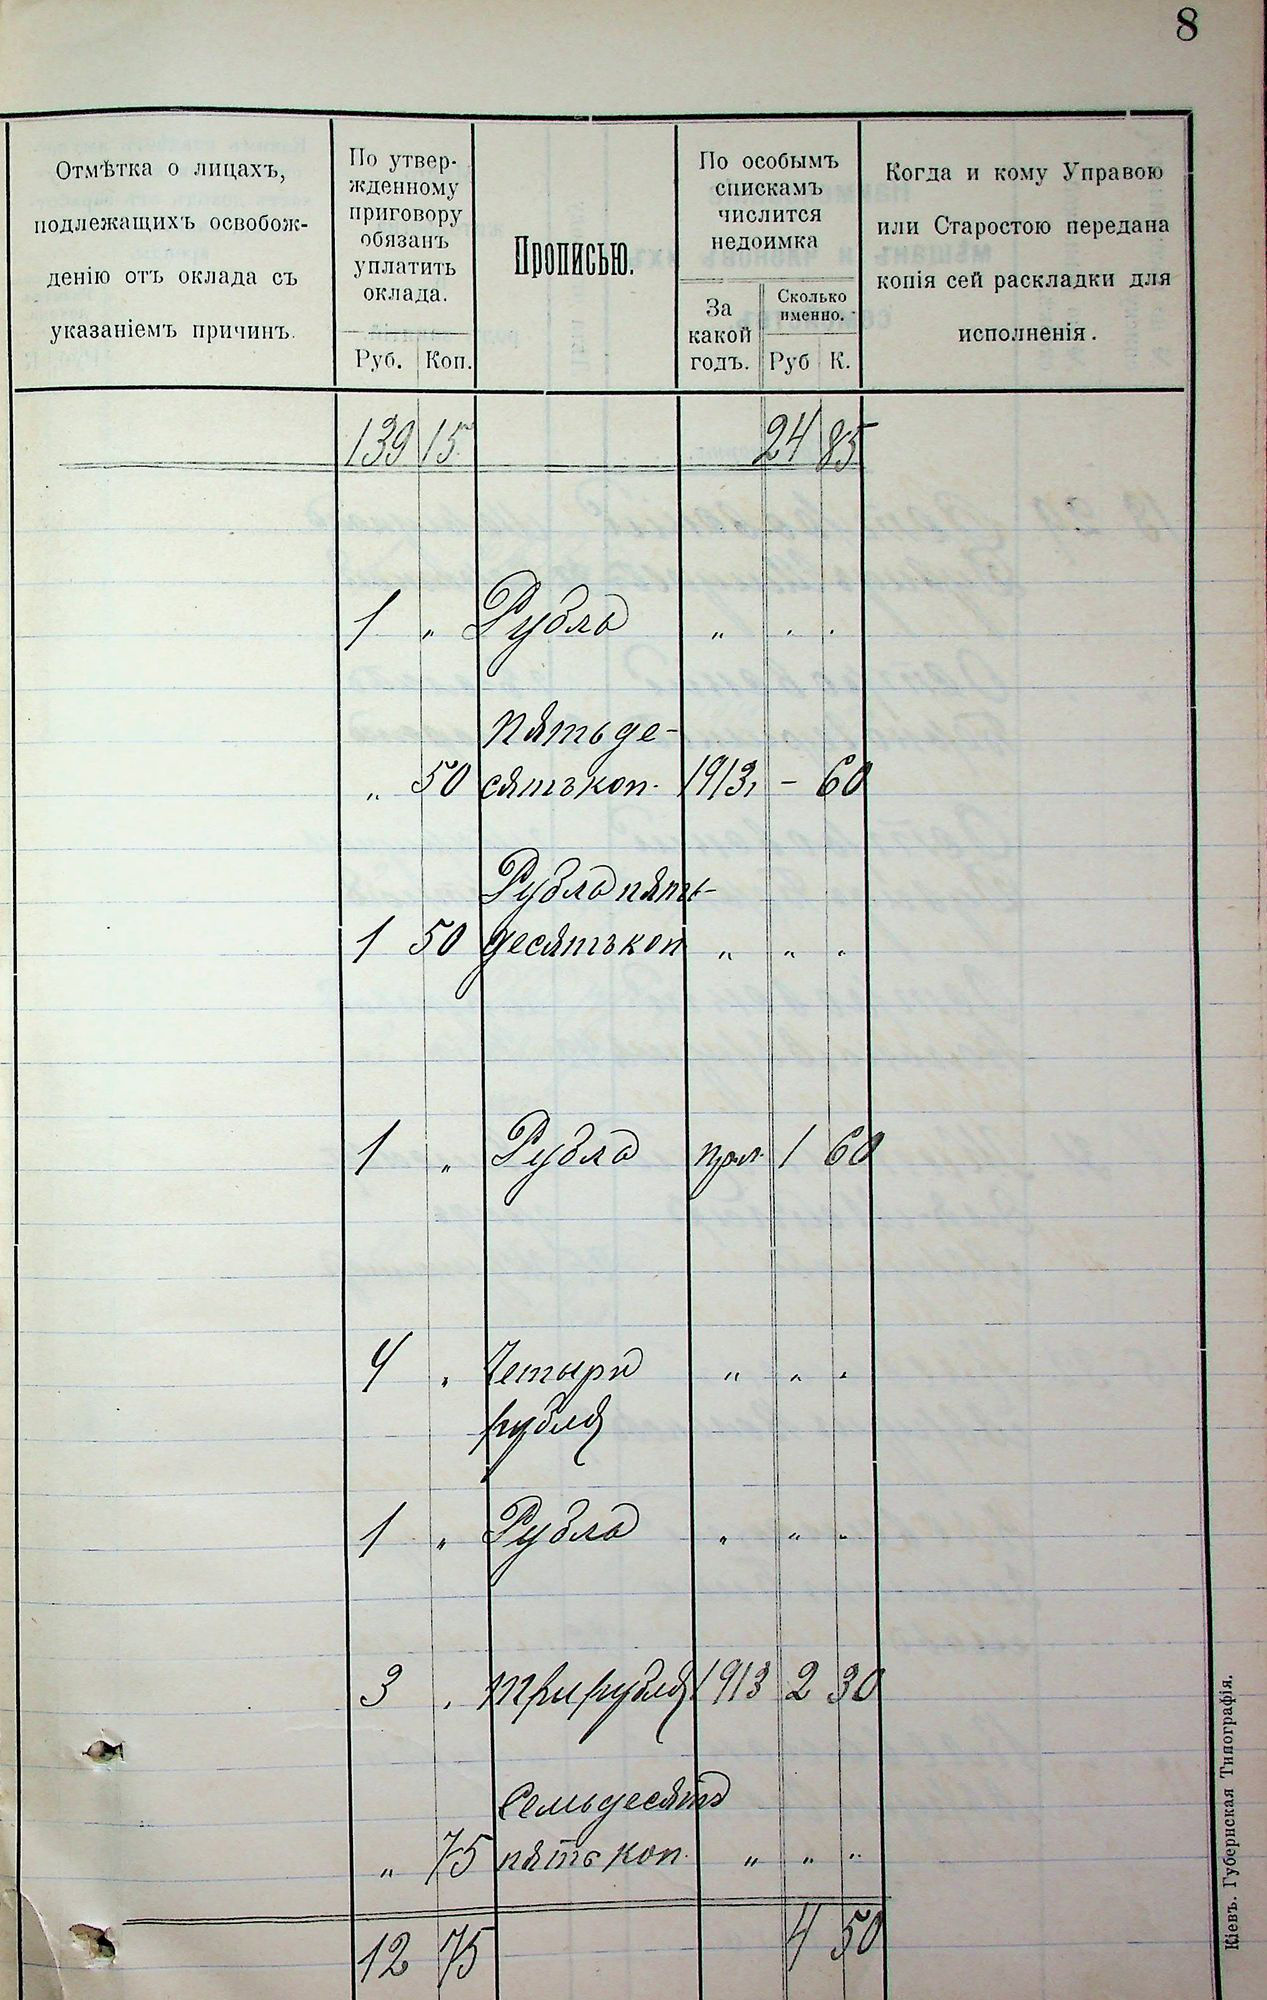 8
Отмѣтка о лицахъ,
подлежащихъ освобож-
денію отъ оклада съ
указаніемъ причинъ.
По утвер-
жденному
приговору
обязанъ
уплатить
оклада.
Руб. Коп.
Прописью.
По особымъ
спискамъ
числится
недоимка
За
какой
годъ.
Сколько
именно.
Руб К.
Когда и кому Управою
или Старостою передана
копія сей раскладки для
исполненія.
139 15 24 85
1 " Рубль " " "
пятьде-
" 50 сятъ коп. 1913 - 60
Рубль пять-
1 50 десятъ коп " " "
1 " Рубль 1 60
4 " Четыре " " "
рубля
1 " Рубль " " "
3 " три рубля 1913 2 30
Семьдесятъ
" 75 пять коп. " " "
12 75 4 50
Кіевъ. Губернская Типографія.